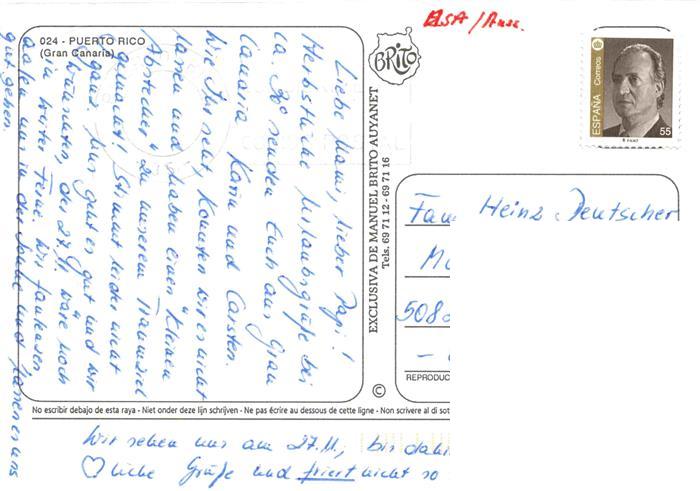 024 - PUERTO RICO
(Gran Canaria)
Liebe Mami, lieber Papi!
Herbstliche Urlaubsgrüße bei
ca. 30° senden Euch aus Gran
Canaria Karin und Carsten.
Wie Ihr seht, konnten wir es nicht
lassen und haben einen "kleinen
Abstecher" zu unserem Traumziel
gemacht! Stimmt leider nicht
ganz. Uns geht es gut und wir
wünschten, der 27.11. wäre noch
in weiter Ferne. Wir faulenzen
aalen uns in der Sonne und lassen es uns
gut gehen.
Wir sehen uns am 27.11., bis dahin
liebe Grüße und friert nicht so
BRITO
EXCLUSIVA DE MANUEL BRITO AUYANET
Tels. 69 71 12 - 69 71 16
©
ELSA/
Correos
ESPAÑA
55
Fam Heinz Deutscher
508
REPRODUC
No escribir debajo de esta raya - Niet onder deze lijn schrijven - Ne pas écrire au dessous de cette ligne - Non scrivere al di sot